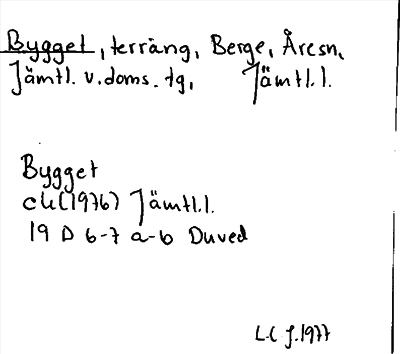 Bygget, terräng, Berge, Åresn,
Jämtl. v. doms. tg, Jämtl.l.
Bygget
ek(1976) Jämtl.l.
19 D 6-7 a-b Duved
L.C f.1977